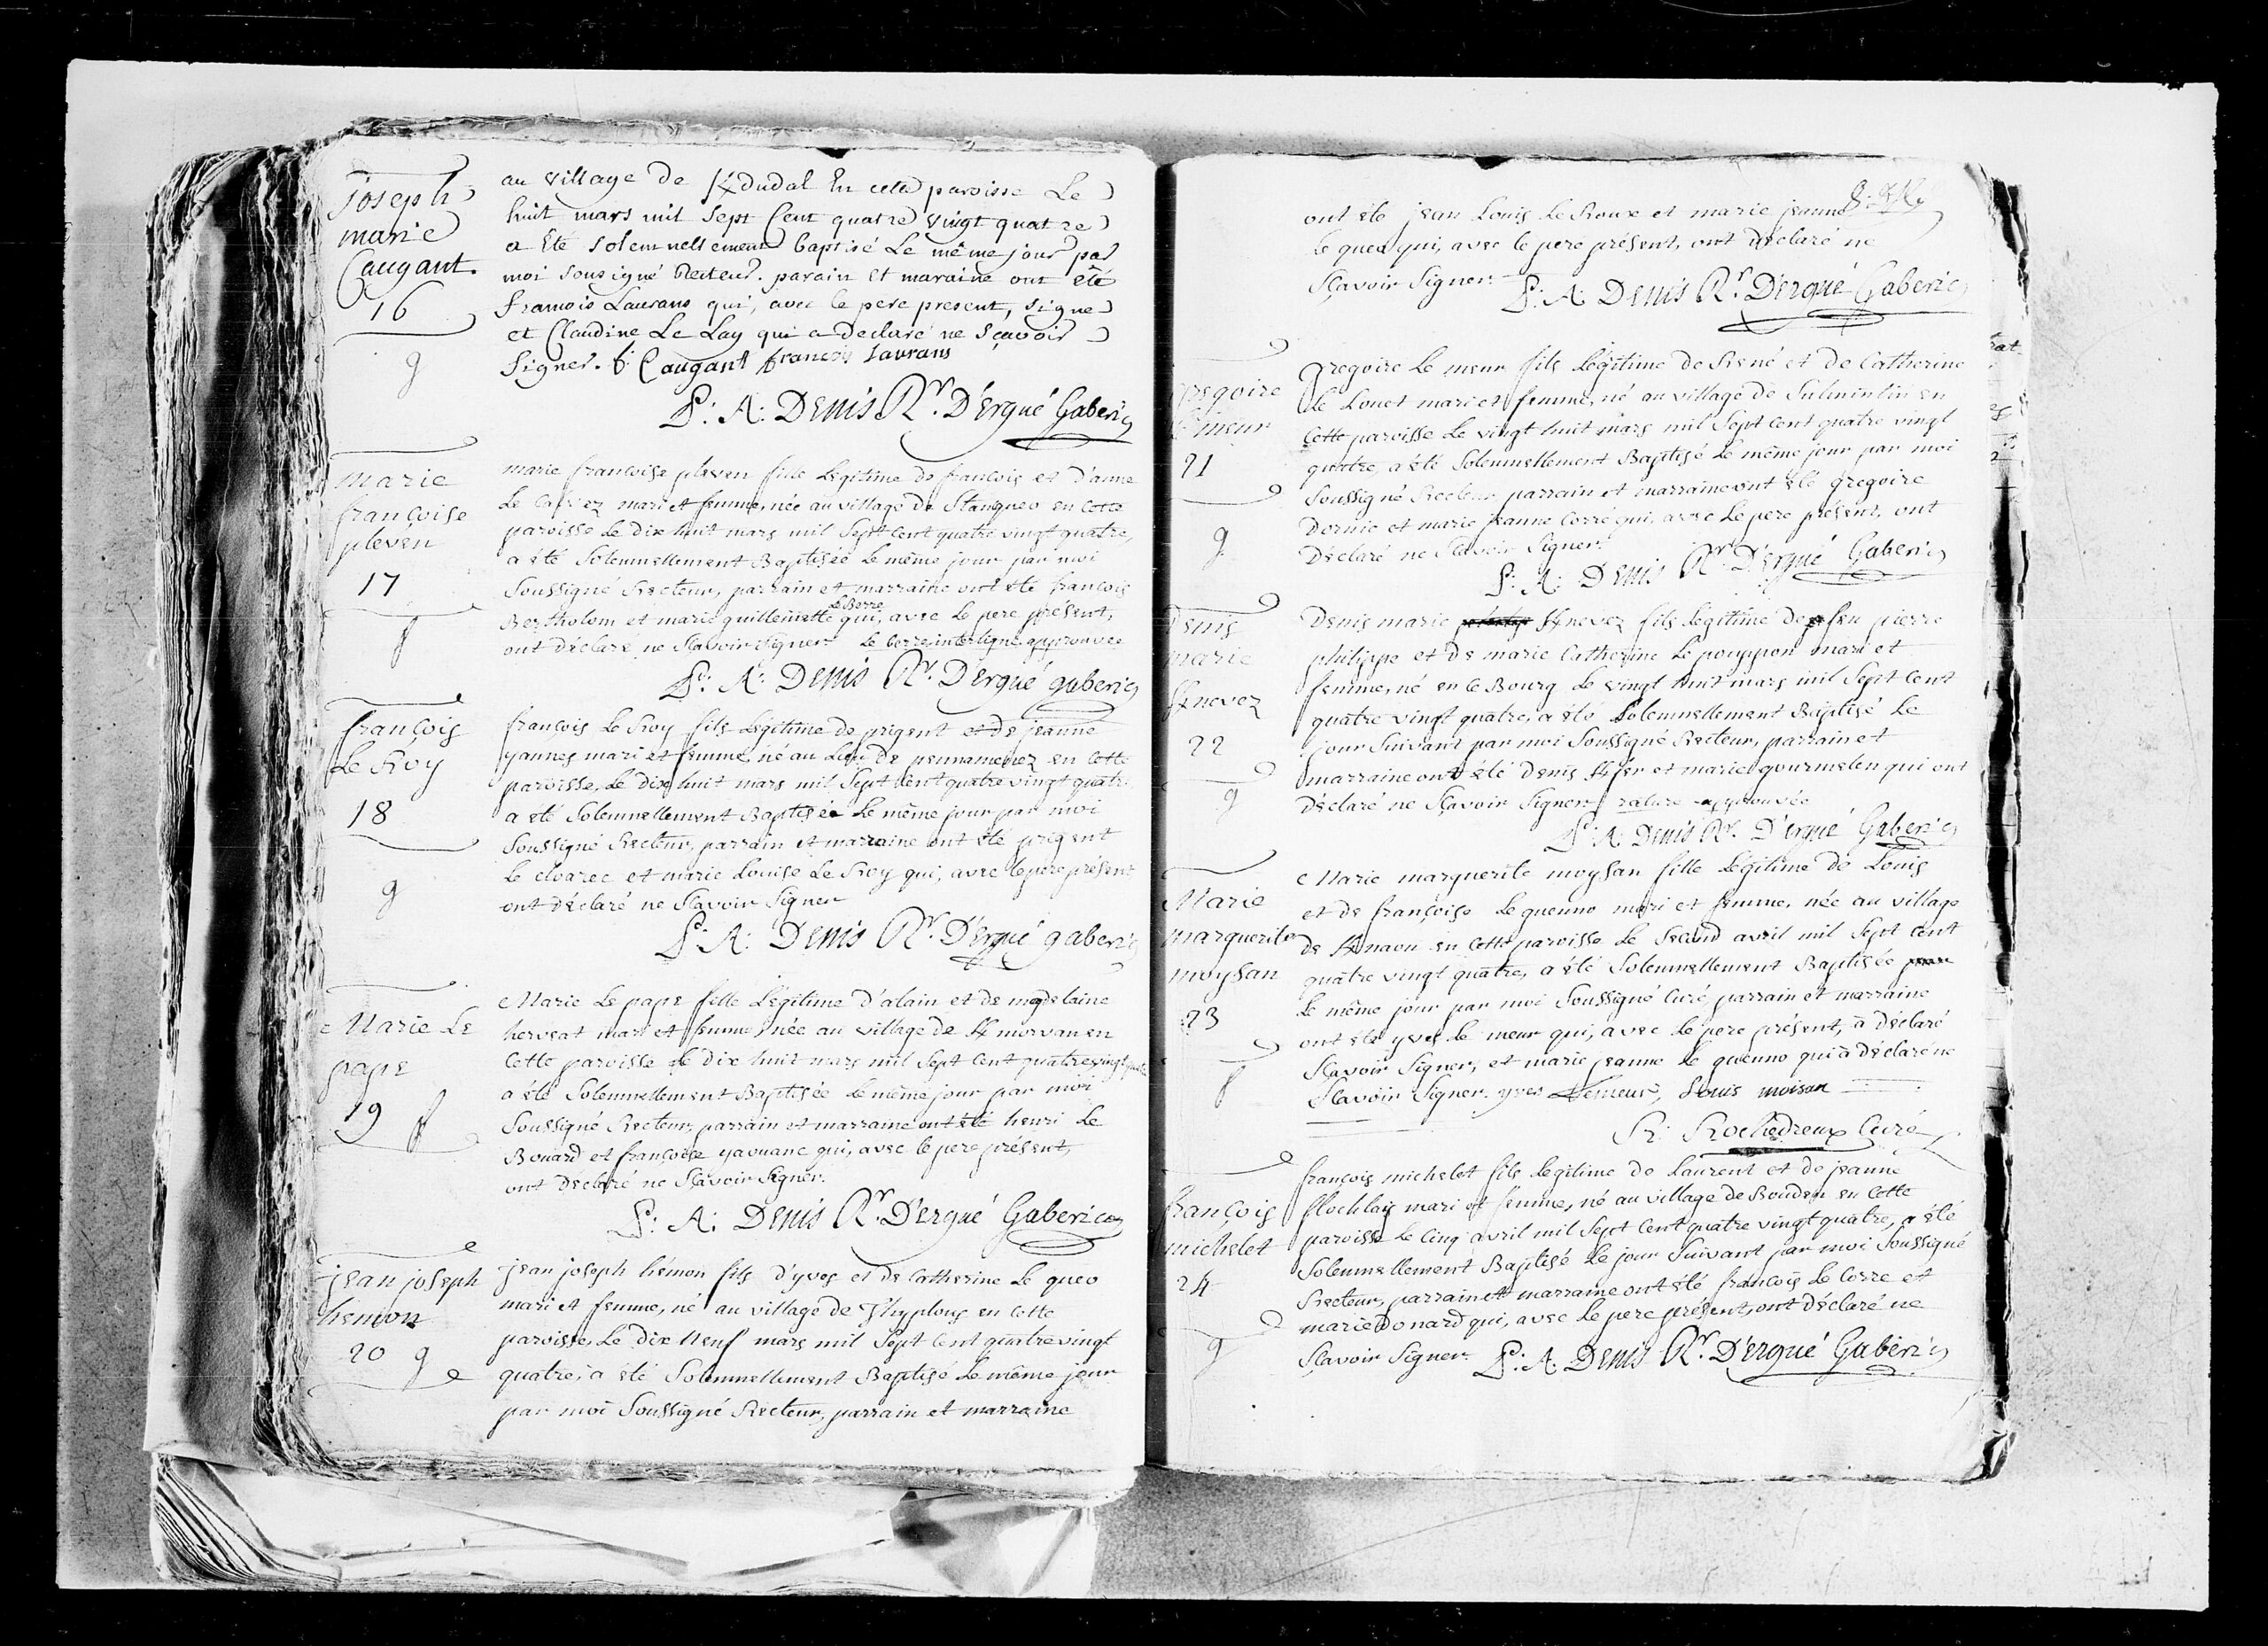 joseph
marie
Caugant.
16
g
au village de K/dudal En cette paroisse Le
huit mars mil sept Cent quatre vingt quatre
a Eté solemnellement baptisé Le même jour par
moi sousigné Recteur. parain et maraine ont été
francois Laurans qui, avec le pere present, signe
et Claudine Le Lay qui a declaré ne sçavoir
signer. f: Caugant francois Laurans
P: A: Denis Rr. D'Ergué Gaberic
marie
françoise
pleven
17
f
marie francoise pleven fille Legitime de francois et d'anne
Le mari et femme, née au village de Stangueo en cette
paroisse le dix huit mars mil Sept Cent quatre vingt quatre,
a été Solemnellement Baptisée le même jour par moi
Soussigné Recteur, parrain et marraine ont été françois
Bertholom et marie guillemette Le Berre qui, avec le pere présent,
ont déclaré ne Sçavoir signer. Le berre, interligne approuvée
P: A: Denis Rr. D'ergué gaberic
françois
Le Roy
18
g
françois Le Roy fils Legitime de prigent et de jeanne
yannes mari et femme, né au Lieu de pennamenez en cette
paroisse, le dix huit mars mil Sept Cent quatre vingt quatre
a été Solemnellement Baptisée le même jour par moi
Soussigné Recteur, parrain et marraine ont été prigent
le cloarec et marie Louise Le Roy qui, avec le pere présent
ont déclaré ne Sçavoir Signer
P: A: Denis Rr. D'Ergué gaberic
Marie Le
pape
19 f
Marie Le pape fille Légitime d'alain et de madelaine
herveat mari et femme, née au village de K/morvan en
Cette paroisse le dix huit mars mil Sept Cent quatre vingt quatre
a été Solemnellement Baptisée le même jour par moi
Soussigné Recteur, parrain et marraine ont été henri Le
Bouard et françoise yaouanc qui, avec le pere présent,
ont Declaré ne Sçavoir Signer.
P: A: Denis Rr. D'Ergué Gaberic
jean joseph
hemon
20 g
jean joseph hemon fils d'yves et de Catherine Le queo
mari et femme, né au village de en Cette
paroisse, le dix neuf mars mil Sept Cent quatre vingt
quatre, a été Solemnellement Baptisé le même jour
par moi Soussigné Recteur, parrain et marraine
ont été jean Louis Le Roux et marie jeanne
le queo qui, avec le pere présent, ont déclaré ne
Sçavoir Signer.
P: A: Denis Rr. D'ergué Gaberic
gregoire
le meur
21
g
gregoire Le meur fils Légitime de René et de Catherine
Le Louet mari et femme, né au village de Sulmintin en
Cette paroisse le vingt huit mars mil Sept Cent quatre vingt
quatre, a été Solemnellement Baptisé le même jour par moi
Soussigné Recteur parrain et marraine ont été gregoire
Dornic et marie jeanne Corré qui, avec le pere présent, ont
Déclaré ne Sçavoir Signer.
P: A: Denis Rr. D'ergué Gaberic
Denis
marie
K/nevez
22
g
Denis marie K/nevez fils Legitime de feu pierre
philippe et de marie Catherine Le pouppon mari et
femme, né en ce Bourg le vingt huit mars mil Sept Cent
quatre vingt quatre, a été Solemnellement Baptisé le
jour Suivant par moi Soussigné Recteur, parrain et
marraine ont été denis et marie gourmelen qui ont
Déclaré ne Sçavoir Signer rature approuvée
P: A: Denis Rr. D'ergué Gaberic
Marie
marguerite
moysan
23
f
Marie marguerite moysan fille Légitime de Louis
et de françoise le guenno mari et femme, née au village
de K/naou en Cette paroisse le Second avril mil Sept Cent
quatre vingt quatre, a été Solemnellement Baptisée
le même jour par moi Soussigné Curé, parrain et marraine
ont été yves le meur qui, avec le pere présent, a déclaré
Sçavoir Signer, et marie jeanne le guenno qui a déclaré ne
Sçavoir Signer. yves Lemeur, Louis moisan
R: Rochedreux Curé
françois
michelet
24
g
françois michelet fils Legitime de Laurent et de jeanne
flochlay mari et femme, né au village de Bouden en Cette
paroisse le Cinq avril mil Sept Cent quatre vingt quatre, a été
Solemnellement Baptisé le jour Suivant par moi Soussigné
Recteur, parrain et marraine ont été françois le Corre et
marie Donard qui, avec le pere présent, ont déclaré ne
Sçavoir Signer. P: A: Denis Rr. D'ergué Gaberic